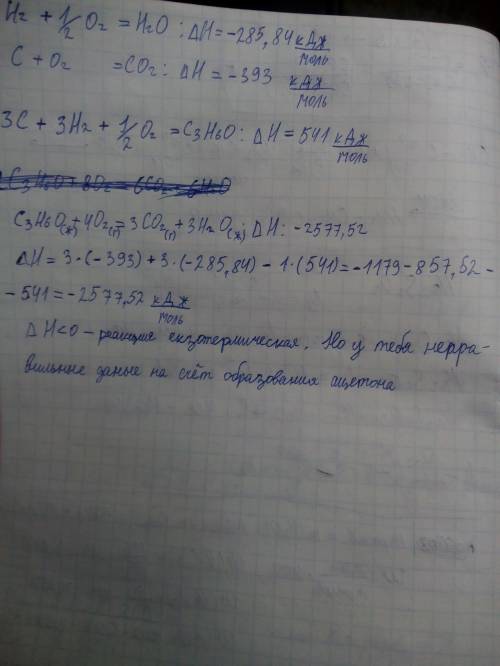 H₂ + 1/2 O₂ = H₂O : ΔH = -285,84 кДж/моль
C + O₂ = CO₂ : ΔH = -393 кДж/моль
3C + 3H₂ + 1/2 O₂ = C₃H₆O : ΔH = 541 кДж/моль
C₃H₆O + 8O₂ = 6CO₂ - 6H₂O
C₃H₆O(ж) + 4O₂(г) = 3CO₂(г) + 3H₂O(ж) ; ΔH : -2577,52
ΔH = 3·(-393) + 3·(-285,84) - 1·(541) = -1179 - 857,52 -
- 541 = -2577,52 кДж/моль
ΔH<0 - реакцие екзотермическая. Но у тебя непра-
вильние даные на счёт образования ацетона